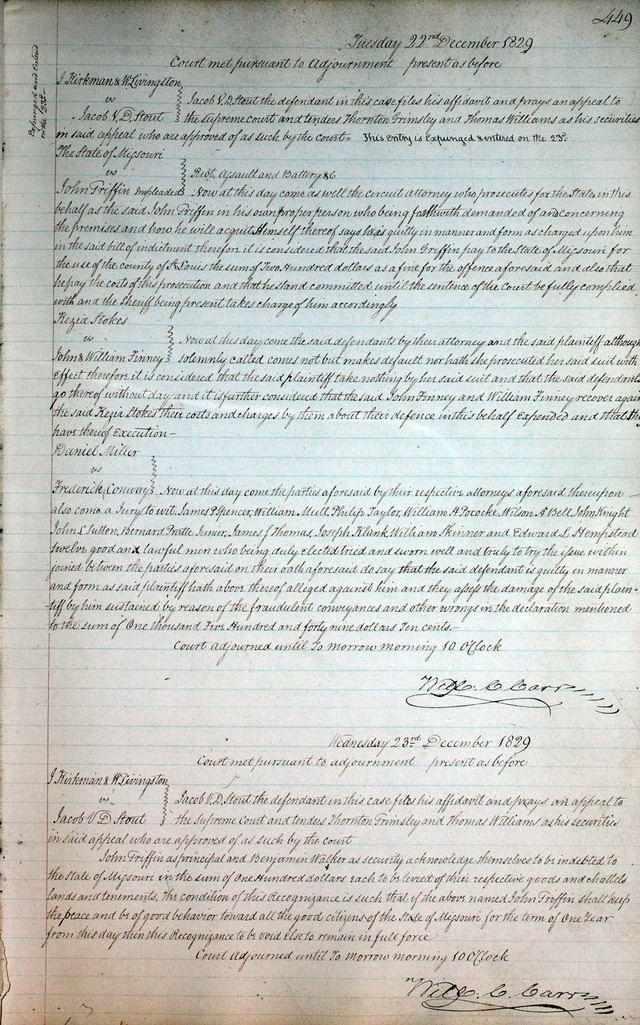 449
Tuesday 22nd December 1829
Court met pursuant to Adjournment present as before
Expunged and Entered on the 23d
J Kirkman & W Livingston
vs
Jacob V. D. Stout the defendant in this case files his affidavit and prays an appeal to
Jacob V D Stout
the supreme court and tenders Thornton Grimsley and Thomas Williams as his securities
in said appeal who are approved of as such by the court - This Entry is Expunged & entered on the 23d
The State of Missouri
vs
Riot, Assault and Battery &c
John Griffin impleaded Now at this day come as well the circuit attorney who prosecutes for the State in this
behalf as the said John Griffin in his own proper person who being forthwith demanded of and concerning
the premises and how he will acquit Himself thereof says he is guilty in manner and form as charged upon him
in the said bill of indictment therefore it is considered that the said John Griffin pay to the State of Missouri for
the use of the county of St Louis the sum of Two Hundred dollars as a fine for the offence aforesaid and also that
he pay the costs of this prosecution and that he stand committed until the sentence of the Court be fully complied
with and the Sheriff being present takes charge of him accordingly
Kezia Stokes
vs
Now at this day come the said defendants by their attorney and the said plaintiff although
John & William Finney
solemnly called comes not but makes default nor hath she prosecuted her said suit with
Effect therefore it is considered that the said plaintiff take nothing by her said suit and that the said defendants
go thereof without day and it is further considered that the said John Finney and William Finney recover against
the said Kezia Stokes their costs and charges by them about their defence in this behalf Expended and that they
have thereof Execution -
Daniel Miller
vs
Frederick Conway Now at this day come the parties aforesaid by their respective attorneys aforesaid thereupon
also come a Jury to wit James Spencer, William Mull Philip Taylor, William H. Pococke, Wilson A Bell John Knight
John L Sutton, Bernard Pratte Junior, James J Thomas, Joseph Klank William Skinner and Edward L. Hempstead
twelve good and lawful men who being duly elected tried and sworn well and truly to try the issue within
joined between the parties aforesaid on their oath aforesaid do say that the said defendant is guilty in manner
and form as said plaintiff hath above thereof alleged against him and they assess the damage of the said plain-
tiff by him sustained by reason of the fraudulent conveyances and other wrongs in the declaration mentioned
to the sum of One thousand Five Hundred and forty nine dollars Ten cents. -
Court adjourned until To Morrow morning 10 O'Clock
Will. C. Carr
Wednesday 23rd December 1829
Court met pursuant to adjournment present as before
J Kirkman & W. Livingston
vs
Jacob V. D. Stout the defendant in this case files his affidavit and prays an appeal to
Jacob V D Stout
the Supreme Court and tenders Thornton Grimsley and Thomas Williams as his securities
in said appeal who are approved of as such by the court
John Griffin as principal and Benjamin Walker as security acknowledge themselves to be indebted to
the State of Missouri in the sum of One Hundred dollars each to be levied of their respective goods and chattels
lands and tenements, the condition of this Recognizance is such that if the above named John Griffin shall keep
the peace and be of good behavior toward all the good citizens of the State of Missouri for the term of One Year
from this day then this Recognizance to be void else to remain in full force
Court Adjourned until To Morrow morning 10 O'Clock
Will. C. Carr